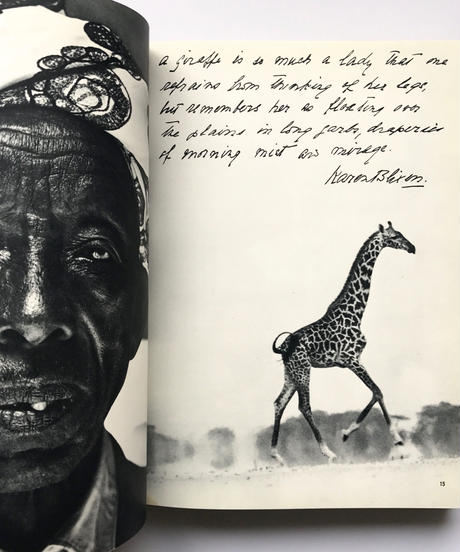 a giraffe is so much a lady that one
refrains from thinking of her legs,
but remembers her as floating over
the plains in long garbs, draperies
of morning mist and mirage.
Karen Blixen.
15